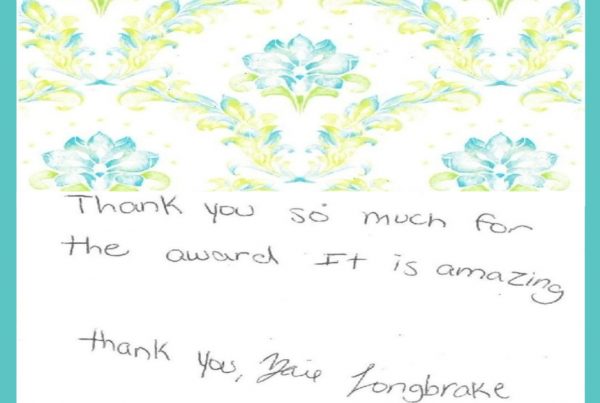 Thank you so much for
the award It is amazing
thank you, Longbrake